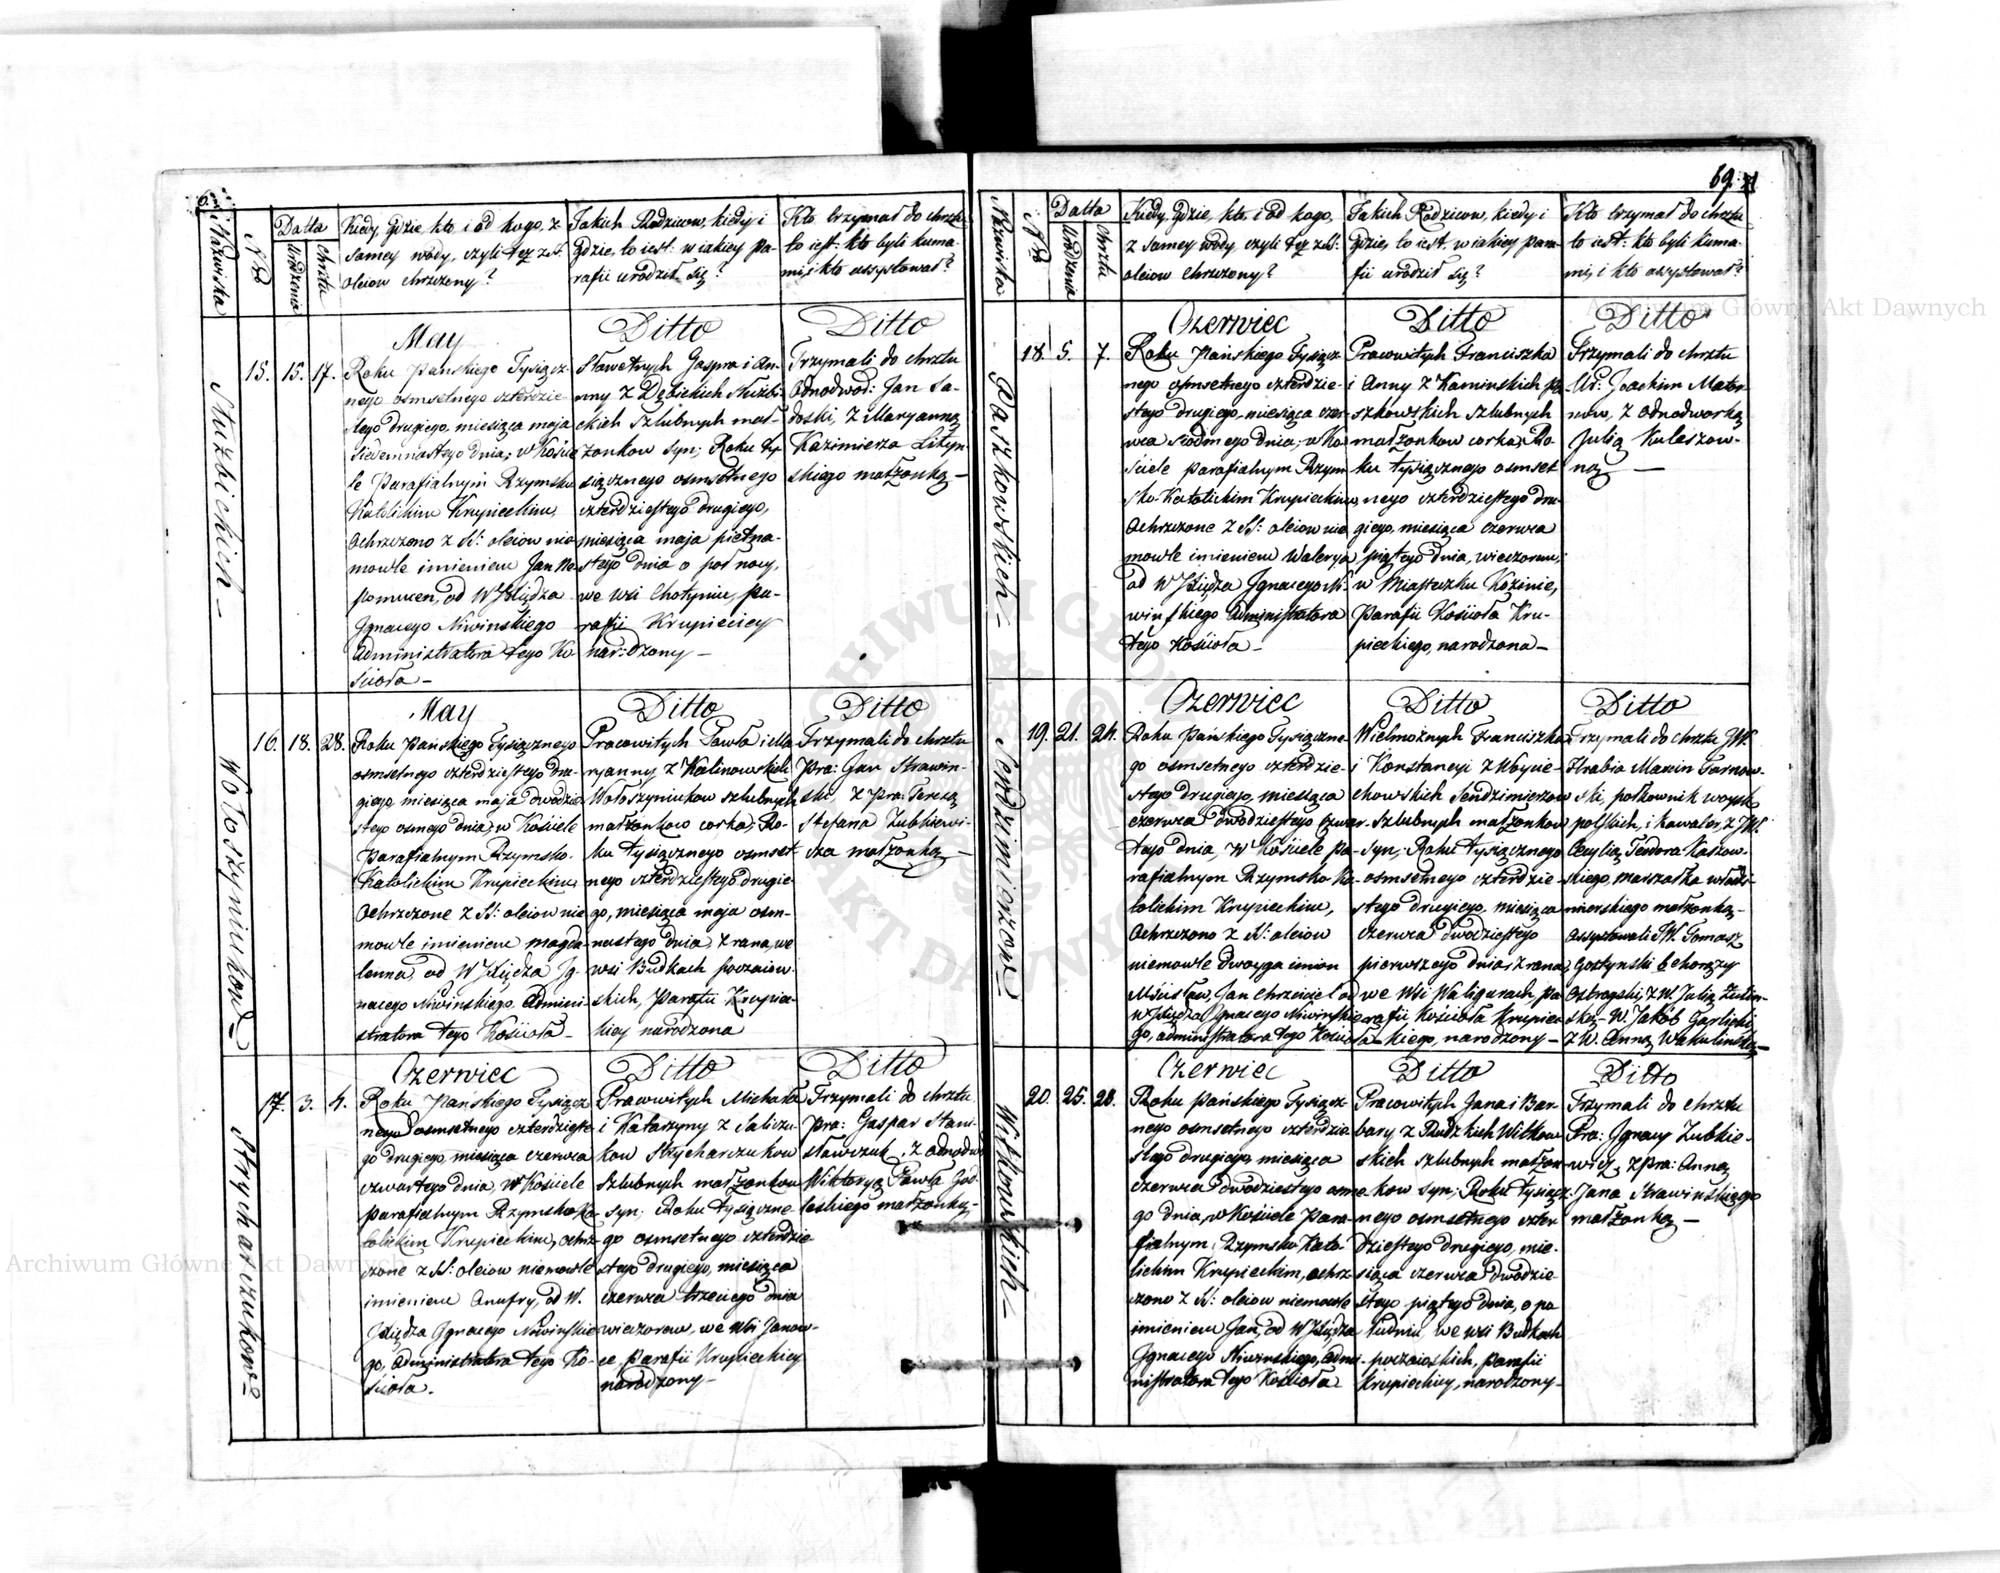 69.
Nazwiska
Nro
Datta
Urodzenia
Chrztu
Kiedy, gdzie, kto i od kogo, z
samey wody, czyli też z SS:
oleiow chrzczony?
Jakich Rodzicow, kiedy i
gdzie, to iest: w iakiey pa-
rafii urodził się?
Kto trzymał do chrztu
to iest: kto byli kuma-
mi, i kto assystował?
Służbickich –
15.
15.
17.
May
Roku Pańskiego Tysiącz-
nego osmsetnego czterdzie-
stego drugiego, miesiąca maja
siedemnastego dnia; w Koście
le Parafialnym Rzymsko
Katolickim Krupieckim,
Ochrzczono z SS: oleiow nie
mowle imieniem Jan Ne-
pomucen, od W Xiędza
Ignacego Niwinskiego
Administratora tego Ko-
ścioła –
Ditto
Sławetnych Gaspra i An-
nny z Dębickich Służbi-
ckich szlubnych mał-
żonkow syn; Roku ty-
siącznego osmsetnego
czterdziestego drugiego,
miesiąca maja pietna-
stego dnia o poł nocy,
we wsi Chotynie, pa-
rafii Krupieckiey
narodzony –
Ditto
Trzymali do chrztu
Odnodwor: Jan Sa-
doski, z Maryanną
Kazimierza
skiego małżonką –
Wołoszyniukow
16.
18.
28.
May
Roku Pańskiego Tysiącznego
osmsetnego czterdziestego dru-
giego, miesiąca maja dwudzie
stego osmego dnia, w Kościele
Parafialnym Rzymsko-
Katolickim Krupieckim
Ochrzczone z SS: oleiow nie
mowle imieniem Magda-
lenna, od W Xiędza Ig-
nacego Niwinskiego Admini-
stratora tego Kościoła –
Ditto
Pracowitych Pawła i Ma
ryanny z Kalinowskich
Wołoszyniukow szlubnych
małżonkow corka; Ro-
ku tysiącznego osmset
nego czterdziestego drugie-
go, miesiąca maja osm-
nastego dnia z rana, we
wsi Budkach poczaiow-
skich, Parafii Krupie-
ckiey narodzona
Ditto
Trzymali do chrztu
Pra: Jan Strawin-
ski, z Pra: Teresą
Stefana Zubkiewi-
cza małżonką –
Strycharczukow
17.
3.
4.
Czerwiec
Roku Pańskiego Tysiącz
nego osmsetnego czterdzieste
go drugiego, miesiąca czerwca
czwartego dnia, w Kościele
parafialnym Rzymsko Ka
tolickim Krupieckim, ochrz
czone z SS: oleiow niemowle
imieniem Onufry, od W.
Xiędza Ignacego Niwinskie
go, administratora tego Ko-
ścioła.
Ditto
Pracowitych Michała
i Katarzyny z Saliczu
kow Strycharczukow
szlubnych małżonkow
syn; Roku tysiączne
go osmsetnego czterdzie
stego drugiego, miesiąca
czerwca trzeciego dnia
wieczorem, we wsi Janow-
ce, parafii Krupieckiey
narodzony –
Ditto
Trzymali do chrztu
Pra: Gaspar Stani-
sławczuk, z odnodw:
Wiktoryą Pawła God-
leskiego małżonką –
Nazwiska
Nro
Datta
Urodzenia
Chrztu
Kiedy, gdzie, kto i od kogo,
z samey wody, czyli też z SS:
oleiow chrzczony?
Jakich Rodzicow, kiedy i
gdzie, to iest: w iakiey para-
fii urodził się?
Kto trzymał do chrztu
to iest: kto byli kuma-
mi, i kto asystował?
Paszkowskich –
18.
5.
7.
Czerwiec
Roku Pańskiego Tysiącz
nego osmsetnego czterdzie-
stego drugiego, miesiąca czer-
wca siodmego dnia, w Ko-
ściele parafialnym Rzym
sko-Katolickim Krupieckim,
Ochrzczone z SS: oleiow nie
mowle imieniem Walerya
od W Xiędza Ignacego Ni-
winskiego Administratora
tego Kościoła –
Ditto
Pracowitych Franciszka
i Anny z Kaminskich Pa
szkowskich szlubnych
małżonkow corka; Ro-
ku tysiącznego osmset
nego czterdziestego dru-
giego, miesiąca czerwca
piątego dnia, wieczorem,
w Miasteczku Kozinie,
Parafii Kościoła Kru-
pieckiego, narodzona –
Ditto
Trzymali do chrztu
Ur: Joachim Mater-
now, z odnodworką
Julią Kuleszow-
ną –
Sendzimierzow
19.
21.
24.
Czerwiec
Roku Pańskiego Tysiączne
go osmsetnego czterdzie-
stego drugiego, miesiąca
czerwca dwudziestego czwar-
tego dnia, w Kościele Pa-
rafialnym Rzymsko Ka-
tolickim Krupieckim,
Ochrzczono z SS: oleiow
niemowle dwoyga imion
Mścisław, Jan Chrzciciel od
W Xiędza Ignacego Niwinskie
go, administratora tego Kościoła
Ditto
Wielmożnych Franciszka
i Konstancyi z Woycie-
chowskich Sendzimierzow
szlubnych małżonkow
syn; Roku tysiącznego
osmsetnego czterdzie-
stego drugiego, miesiąca
czerwca dwudziestego
pierwszego dnia, z rana,
we wsi Waligurach, pa-
rafii Kościoła Krupiec-
kiego, narodzony –
Ditto
Trzymali do chrztu JW.
Hrabia Marcin Tarnow-
ski, połkownik woysk
polskich, i kawaler, z JW.
Cecylią Teodora Kaszow-
skiego, marszałka włodzi-
mierskiego małżonką –
Assystowali JW. Tomasz
Gostynski Chorąży
Ostrogski, z W. Julią
ską – W. Jakób Garlicki
z W. Anną Wakulinską –
Witkowskich –
20.
25.
28.
Czerwiec
Roku Pańskiego Tysiącz-
nego osmsetnego czterdzie
stego drugiego, miesiąca
czerwca dwudziestego osme-
go dnia, w Kościele Para-
fialnym, Rzymsko Kato-
lickim Krupieckim, ochrz
czono z SS: oleiow niemowle
imieniem Jan, od W Xiędza
Ignacego Niwinskiego, admi-
nistratora tego Kościoła
Ditto
Pracowitych Jana i Bar-
bary z Rudzkich Witkow
skich szlubnych małżon-
kow syn; Roku tysiącz
nego osmsetnego czter
dziestego drugiego, mie-
siąca czerwca dwudzie-
stego piątego dnia, o po
łudniu, we wsi Budkach
poczaioskich, parafii
Krupieckiey, narodzony –
Ditto
Trzymali do chrztu
Pra: Ignacy Zubkie-
wicz, z Pra: Anną
Jana Strawinskiego
małżonką –
Archiwum Główne Akt Dawnych
Archiwum Główne Akt Dawnych
ARCHIWUM GŁÓWNE AKT DAWNYCH